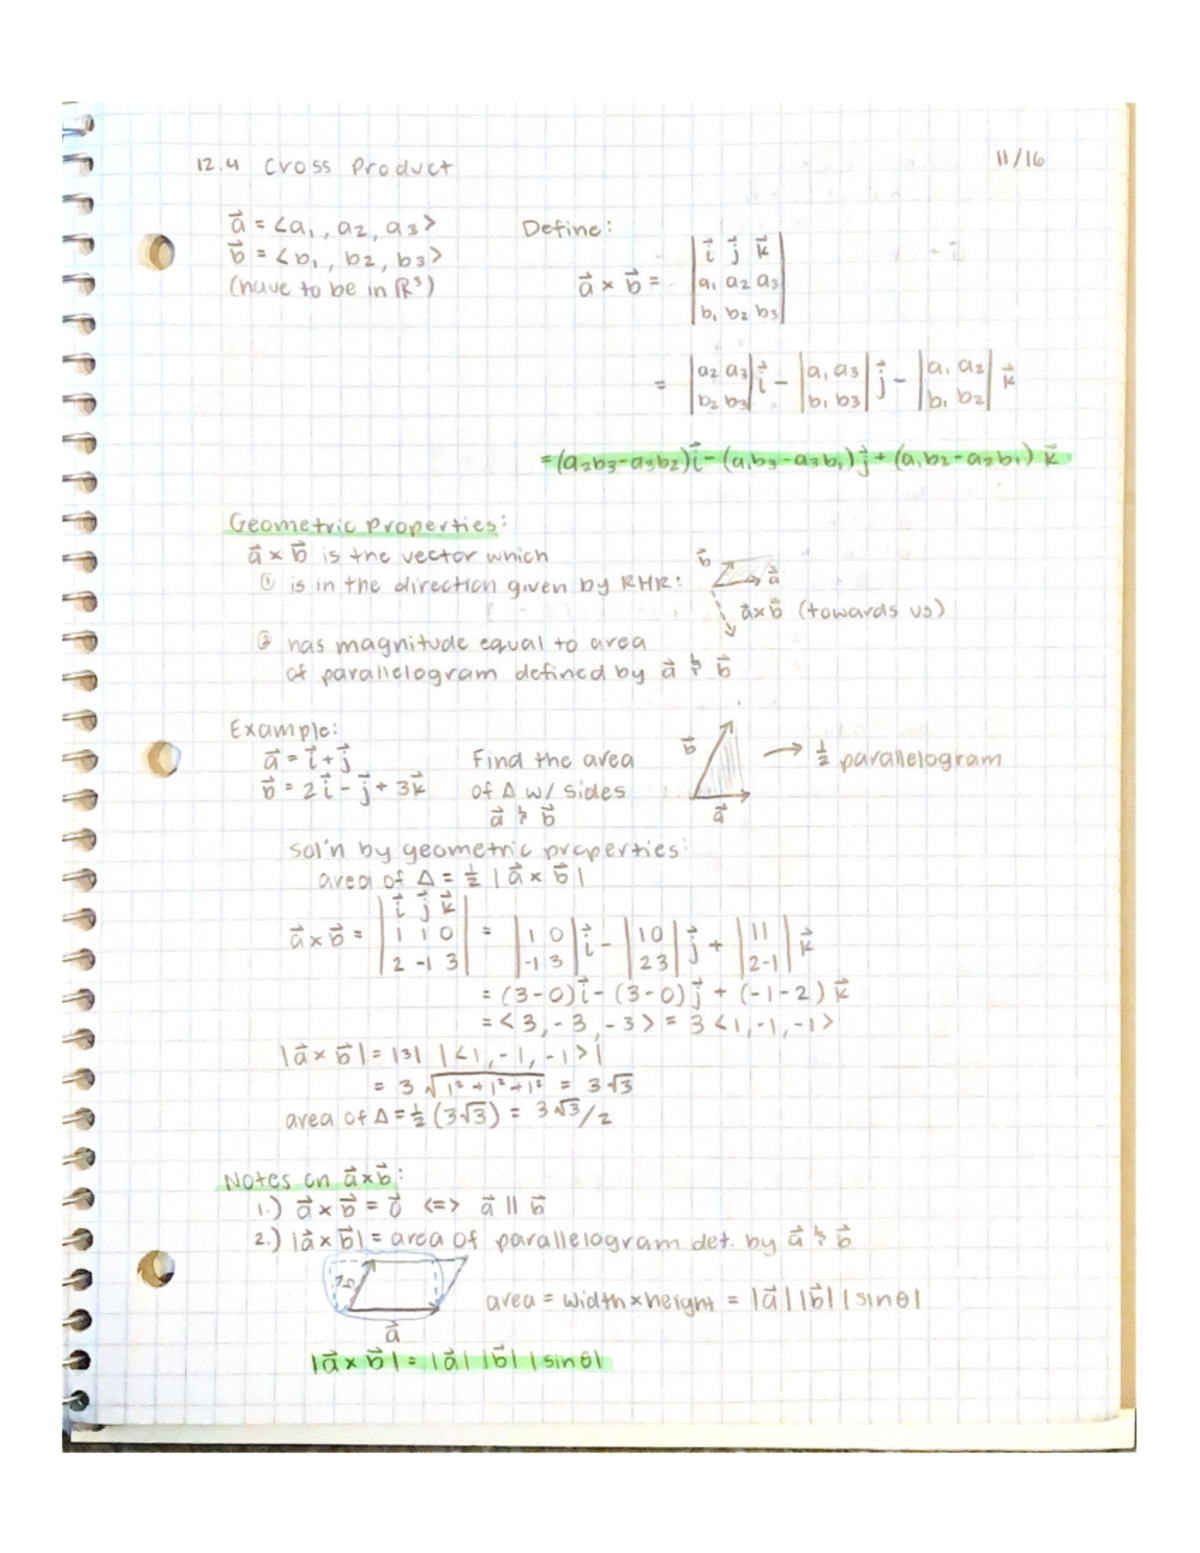 12.4 Cross Product 11/16
a⃗ = <a₁, a₂, a₃>
b⃗ = <b₁, b₂, b₃>
(have to be in ℝ³)
Define:
a⃗ × b⃗ = | i⃗ j⃗ k⃗ |
| a₁ a₂ a₃ |
| b₁ b₂ b₃ |
= | a₂ a₃ | i⃗ - | a₁ a₃ | j⃗ - | a₁ a₂ | k⃗
| b₂ b₃ | | b₁ b₃ | | b₁ b₂ |
= (a₂b₃-a₃b₂)i⃗ - (a₁b₃-a₃b₁)j⃗ + (a₁b₂-a₂b₁)k⃗
Geometric Properties:
a⃗ × b⃗ is the vector which
① is in the direction given by RHR:
b⃗ a⃗
a⃗×b⃗ (towards us)
② has magnitude equal to area
of parallelogram defined by a⃗ & b⃗
Example:
a⃗ = i⃗ + j⃗
b⃗ = 2i⃗ - j⃗ + 3k⃗
Find the area
of Δ w/ sides
a⃗ & b⃗
b⃗ → ½ parallelogram
a⃗
sol'n by geometric properties:
area of Δ = ½ |a⃗ × b⃗|
a⃗×b⃗ = | i⃗ j⃗ k⃗ | = | 1 0 | i⃗ - | 1 0 | j⃗ + | 1 1 | k⃗
| 1 1 0 | | -1 3 | | 2 3 | | 2 -1 |
| 2 -1 3 |
= (3-0)i⃗ - (3-0)j⃗ + (-1-2)k⃗
= <3, -3, -3> = 3<1, -1, -1>
|a⃗ × b⃗| = |3| |<1, -1, -1>|
= 3 √(1²+1²+1²) = 3√3
area of Δ = ½(3√3) = 3√3/2
Notes on a⃗×b⃗:
1.) a⃗ × b⃗ = 0⃗ <=> a⃗ || b⃗
2.) |a⃗ × b⃗| = area of parallelogram det. by a⃗ & b⃗
area = width × height = |a⃗| |b⃗| |sin θ|
a⃗
|a⃗ × b⃗| = |a⃗| |b⃗| |sin θ|